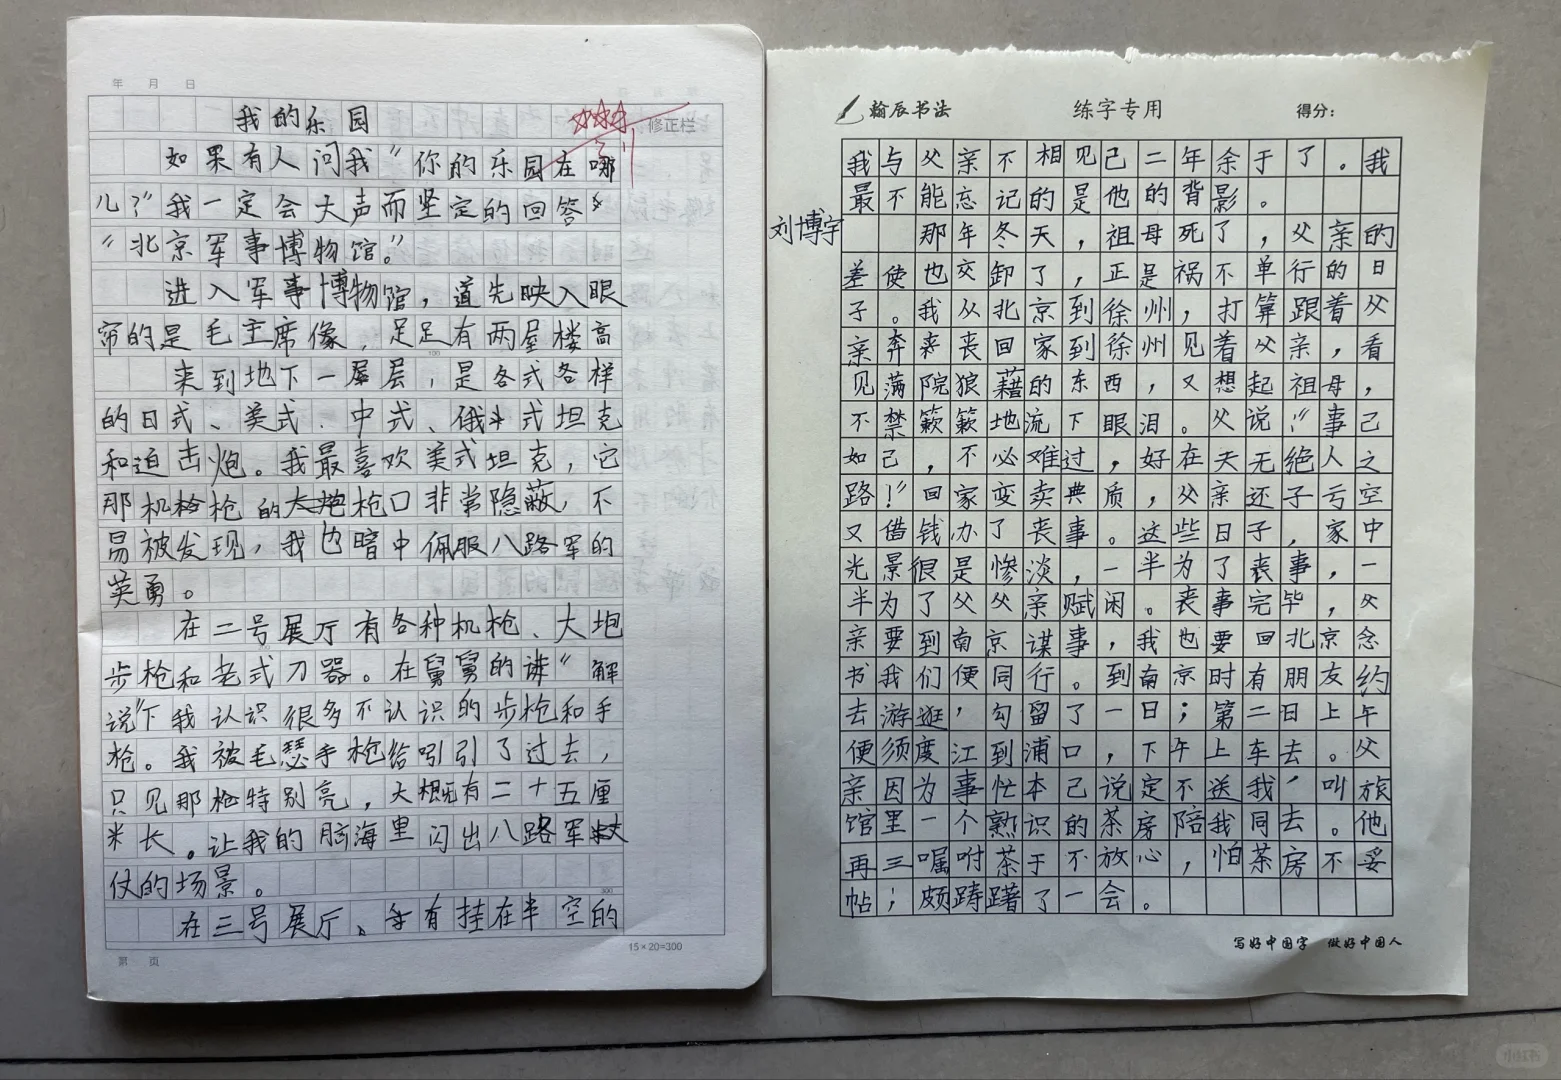 年 月 日
我的乐园
修正栏
如果有人问我“你的乐园在哪
儿?”我一定会大声而坚定的回答
“北京军事博物馆。”
进入军事博物馆，道先映入眼
帘的是毛主席像，足足有两层楼高
来到地下一层，是各式各样
的日式、美式、中式、俄式坦克
和迫击炮。我最喜欢美式坦克，它
那机枪的枪口非常隐蔽，不
易被发现，我也暗中佩服八路军的
英勇。
在二号展厅有各种机枪、大炮
步枪和老式刀器。在舅舅的讲“解
说”下我认识很多不认识的步枪和手
枪。我被毛瑟手枪给吸引了过去，
只见那枪特别亮，大概有二十五厘
米长。让我的脑海里闪出八路军
仗的场景。
在三号展厅、有挂在半空的
100
300
15×20=300
第 页
翰辰书法
练字专用
得分：
刘博宇
我与父亲不相见已二年余于了。我
最不能忘记的是他的背影。
那年冬天，祖母死了，父亲的
差使也交卸了，正是祸不单行的日
子。我从北京到徐州，打算跟着父
亲奔丧回家到徐州见着父亲，看
见满院狼藉的东西，又想起祖母，
不禁簌簌地流下眼泪。父说“事已
如己，不必难过，好在天无绝人之
路！”回家变卖典质，父亲还子亏空
又借钱办了丧事。这些日子，家中
光景很是惨淡，一半为了丧事，一
半为了父父亲赋闲。丧事完毕，父
亲要到南京谋事，我也要回北京念
书我们便同行。到南京时有朋友约
去游逛，勾留了一日；第二日上午
便须度江到浦口，下午上车去。父
亲因为事忙本己说定不送我，叫旅
馆里一个熟识的茶房陪我同去。他
再三嘱咐茶于不放心，怕茶房不妥
帖；颇踌躇了一会。
写好中国字 做好中国人
小红书